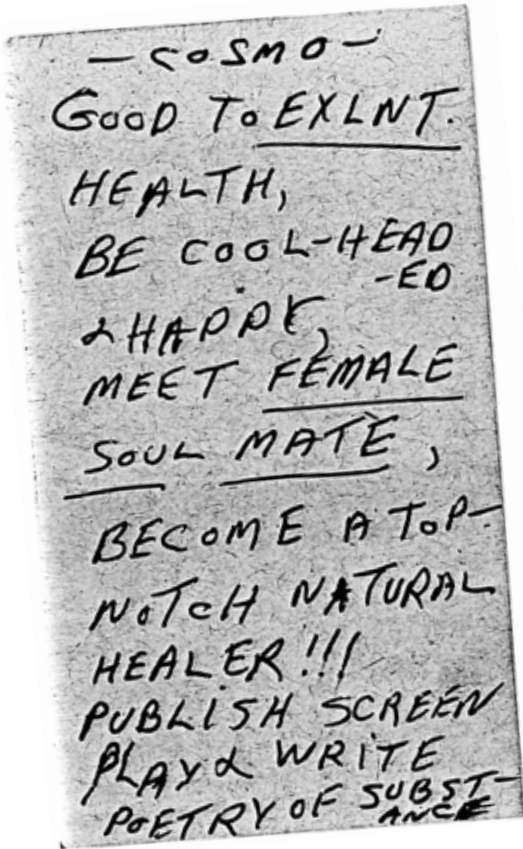 -COSMO-
GOOD TO EXLNT.
HEALTH,
BE COOL-HEAD
-ED
& HAPPY,
MEET FEMALE
SOUL MATE,
BECOME A TOP-
NOTCH NATURAL
HEALER!!!
PUBLISH SCREEN
PLAY & WRITE
POETRY OF SUBST-
ANCE